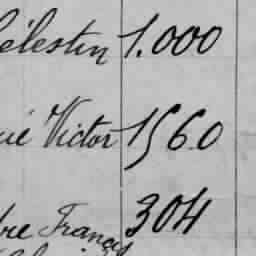 élestin 1.000
Victor 1560
bre François 304